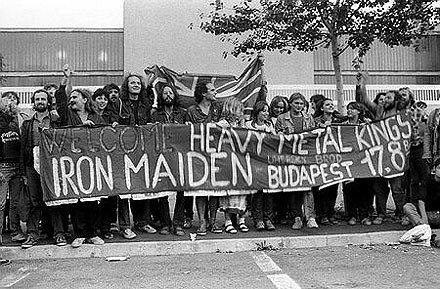 WELCOME HEAVY METAL KINGS
IRON MAIDEN BUDAPEST 17.8